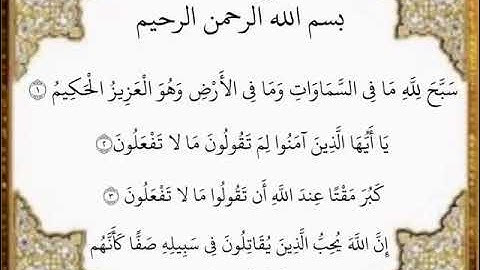 بسم الله الرحمن الرحيم
سَبَّحَ لِلَّهِ مَا فِى السَّمَاوَاتِ وَمَا فِى الأَرْضِ وَهُوَ الْعَزِيزُ الْحَكِيمُ ١
يَا أَيُّهَا الَّذِينَ آمَنُوا لِمَ تَقُولُونَ مَا لا تَفْعَلُونَ ٢
كَبُرَ مَقْتًا عِندَ اللَّهِ أَن تَقُولُوا مَا لا تَفْعَلُونَ ٣
إِنَّ اللَّهَ يُحِبُّ الَّذِينَ يُقَاتِلُونَ فِى سَبِيلِهِ صَفًّا كَأَنَّهُم